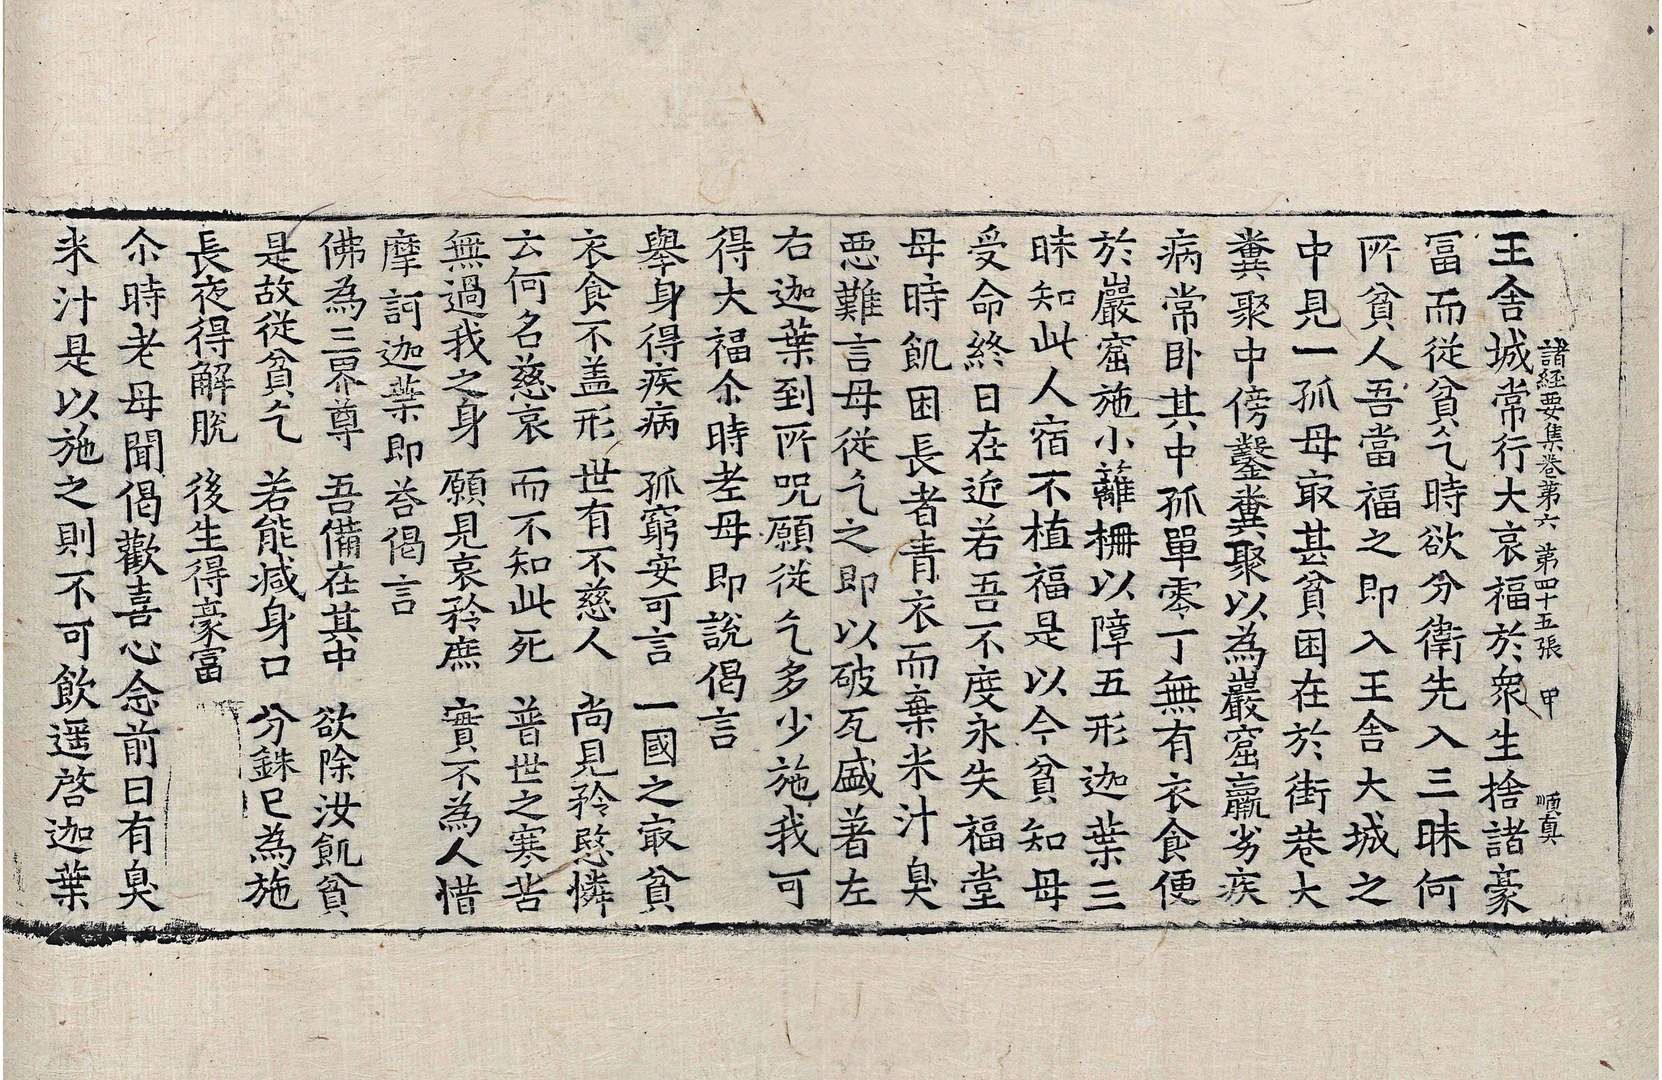 諸經要集卷第六 第四十五張 甲 順真
王舎城常行大哀福於衆生捨諸豪
冨而從貧乞時欲分衛先入三昧何
所貧人吾當福之即入王舎大城之
中見一孤母㝡甚貧困在於街巷大
糞聚中傍鑿糞聚以為巖窟羸劣疾
病常卧其中孤單零丁無有衣食便
於巖窟施小籬柵以障五形迦葉三
昧知此人宿不植福是以今貧知母
受命終日在近若吾不度永失福堂
母時飢困長者青衣而棄米汁臭
惡難言母從乞之即以破瓦盛著左
右迦葉到所呪願從乞多少施我可
得大福尒時老母即說偈言
舉身得疾病 孤窮安可言 一國之㝡貧
衣食不盖形 世有不慈人 尚見矜愍憐
云何名慈哀 而不知此死 普世之寒苦
無過我之身 願見哀矜庶 實不為人惜
摩訶迦葉即荅偈言
佛為三界尊 吾備在其中 欲除汝飢貧
是故從貧乞 若能減身口 分銖已為施
長夜得解脫 後生得豪富
尒時老母聞偈歡喜心念前日有臭
米汁是以施之則不可飲遥啓迦葉